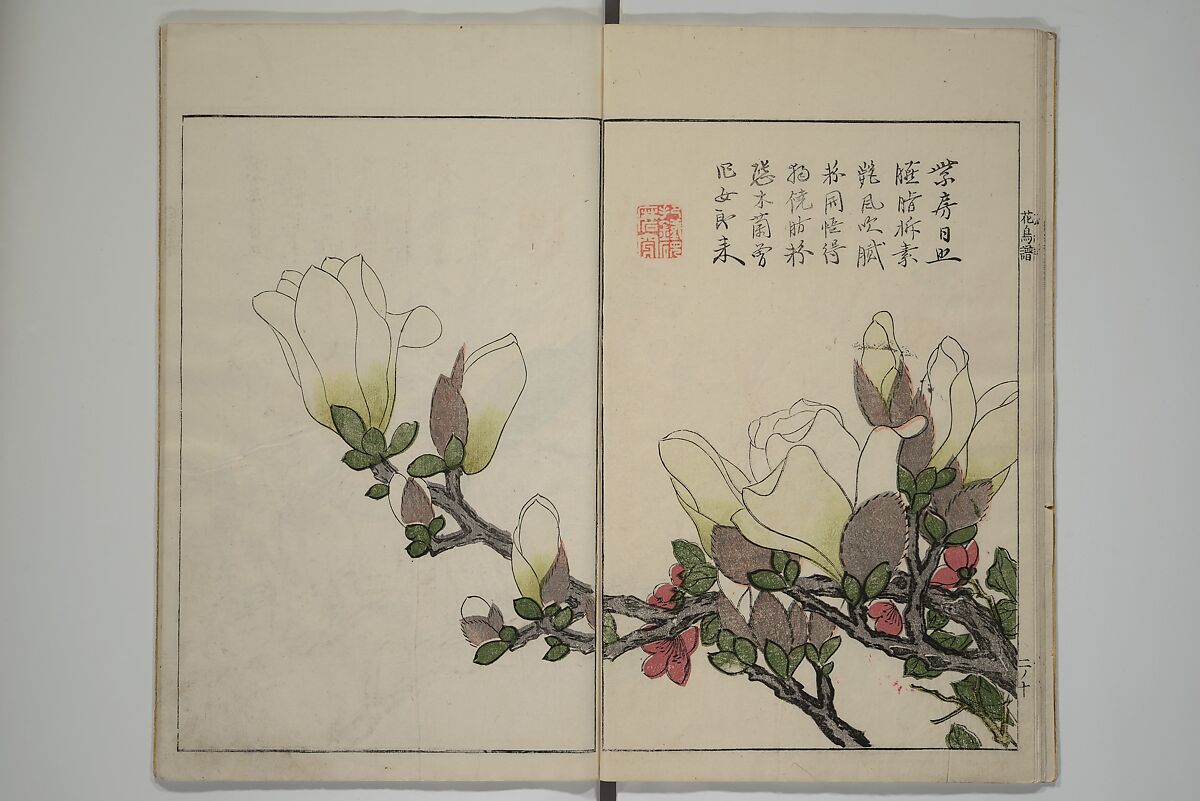 花鳥譜
紫房日照
臙脂拆素
艷風吹膩
粉開恠得
獨饒脂粉
態木蘭曾
作女郎来
二ノ十